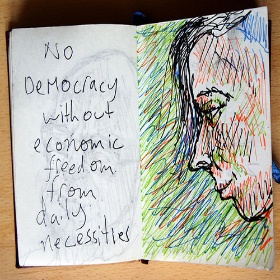 No
DeMocRacy
without
economic
freedom
from
daily
necessities